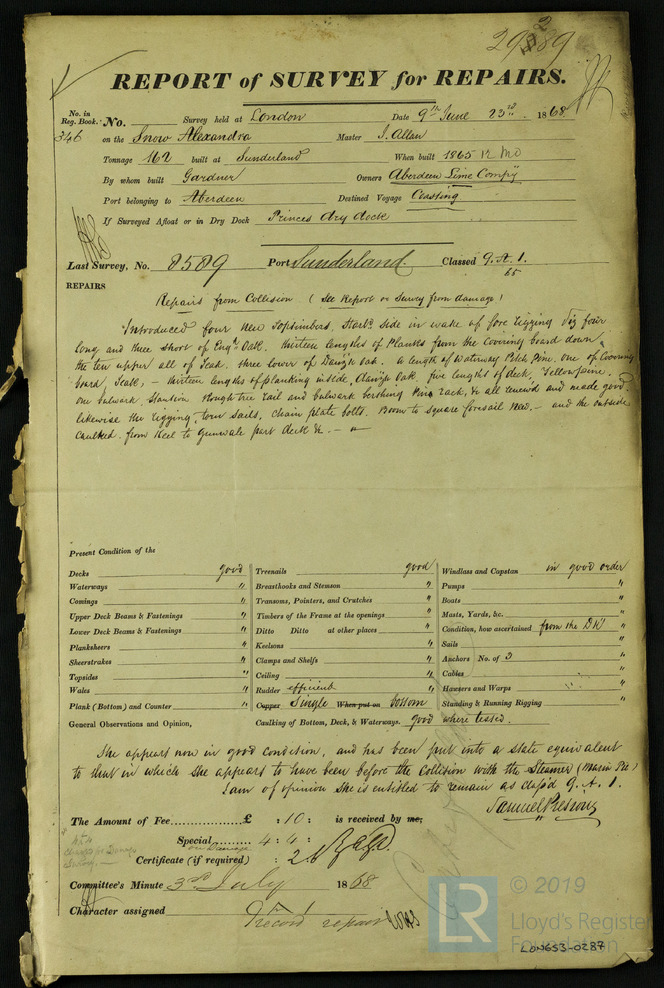 29289
REPORT of SURVEY for REPAIRS.
No. in Reg. Book. No. Survey held at London Date 9th June 23rd. 1868
346 on the Snow Alexandra Master J. Allan
Tonnage 162 built at Sunderland When built 1865 12 Mo
By whom built Gardner Owners Aberdeen Lime Compy
Port belonging to Aberdeen Destined Voyage Coasting
If Surveyed Afloat or in Dry Dock Princes dry dock
Last Survey, No. 8589 Port Sunderland Classed 9. A. 1.
65
REPAIRS
Repairs from Collision. (See Report on Survey from damage)
Introduced four new Toptimbers, Starbd side in wake of fore rigging viz four
long and three short of Engh Oak. thirteen lengths of Planks from the Covering board down,
the ten upper all of Teak. three lower of Dantzic oak. a length of Waterway Pitch Pine, one of Covering
board, Teak, - thirteen lengths of planking inside, Dantzic Oak. five lengths of deck, Yellow Pine.
one bulwark Stantion Rough tree rail and bulwark berthing Pin rack, &c all renew'd and made good
likewise the rigging, torn Sails, chain plate bolts. Boom to square foresail New. - and the outside
Caulked. from Keel to Gunwale part deck &c. -
Present Condition of the
Decks good Treenails good Windlass and Capstan in good order
Waterways " Breasthooks and Stemson " Pumps "
Comings " Transoms, Pointers, and Crutches " Boats "
Upper Deck Beams & Fastenings " Timbers of the Frame at the openings " Masts, Yards, &c. "
Lower Deck Beams & Fastenings " Ditto Ditto at other places " Condition, how ascertained from the Dk
Planksheers " Keelsons " Sails "
Sheerstrakes " Clamps and Shelfs " Anchors No. of 3 "
Topsides " Ceiling " Cables "
Wales " Rudder efficient " Hawsers and Warps "
Plank (Bottom) and Counter " Copper Single When put on bottom Standing & Running Rigging "
General Observations and Opinion, Caulking of Bottom, Deck, & Waterways. good where tested.
She appears now in good condition, and has been put into a state equivalent
to that in which she appears to have been before the Collision with the Steamer
I am of opinion she is entitled to remain as class'd 9. A. 1.
Samuel Preston
The Amount of Fee £ : 10 : is received by me;
Special 4 : 4 :
on Damage
Certificate (if required) : 2
Committee's Minute 3rd July 1868
Character assigned
Record report
LR © 2019
Lloyd's Register
Foundation
LON653-0287